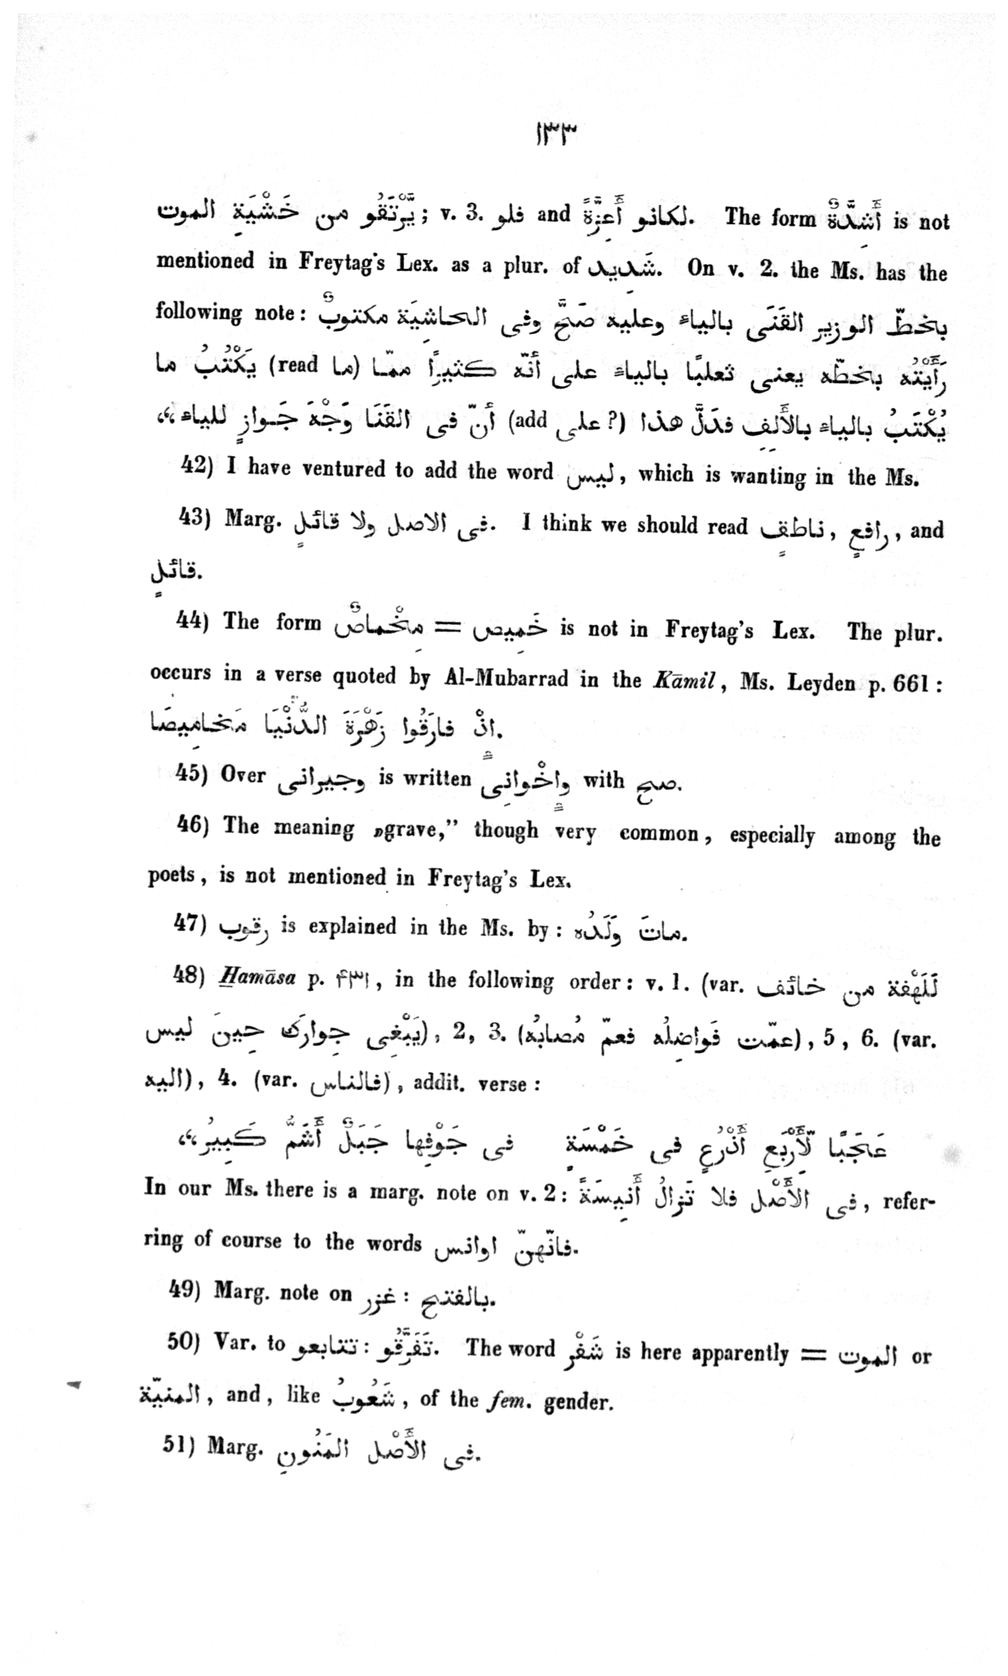 ١٣٣
يَّرْتَقُو من خَشْيَةِ الموت ; v. 3. فلو and لكانو أَعِزَّةً. The form أَشِدَّةٌ is not
mentioned in Freytag's Lex. as a plur. of شَدِيد. On v. 2. the Ms. has the
following note: بخطّ الوزير القَنَى بالياء وعليه صَحَّ وفى الحاشيَة مكتوبٌ
رَأَيْتُه بخطّه يعنى ثعلبًا بالياء على أنّه كثيرًا ممّا (read ما) يَكْتُبُ ما
يُكْتَبُ بالياء بالأَلِفِ فدَلَّ هذا (add على ?) أنّ فى القَنَا وَجْهَ جَوازٍ للياء،،
42) I have ventured to add the word ليس, which is wanting in the Ms.
43) Marg. فى الاصل ولا قائلٍ. I think we should read ناطقٍ, رافعٍ, and
قائلٍ.
44) The form مِخْماصٌ = خَمِيص is not in Freytag's Lex. The plur.
occurs in a verse quoted by Al-Mubarrad in the Kāmil, Ms. Leyden p. 661:
اذْ فارَقُوا زَهْرَةَ الدُّنْيَا مَخَامِيصَا.
45) Over وجيرانى is written وإخْوانِى with صح.
46) The meaning „grave,” though very common, especially among the
poets, is not mentioned in Freytag's Lex.
47) رقوب is explained in the Ms. by: ماتَ وَلَدُه.
48) Hamāsa p. ۴۳۱, in the following order: v. 1. (var. لَلَهْفَة من خائف
يَبْغِى جِوارَك حِينَ ليس), 2, 3. (عمّت فَواضلُه فعمّ مُصابُه), 5, 6. (var.
اليه), 4. (var. فالناس), addit. verse:
عَجَبًا لِّأَرْبَعِ أَذْرُعٍ فى خَمْسَةٍ فى جَوْفِها جَبَلٌ أَشَمُّ كَبِيرُ،،
In our Ms. there is a marg. note on v. 2: فى الأَصْل فلا تَزالُ أَنِيسَةً, refer-
ring of course to the words فانّهنّ اوانس.
49) Marg. note on غزر: بالفتح.
50) Var. to تتابعو: تَفَرَّقُو. The word شَفْر is here apparently = الموت or
المنيّة, and, like شَعُوبُ, of the fem. gender.
51) Marg. فى الأَصْل المَنُونِ.